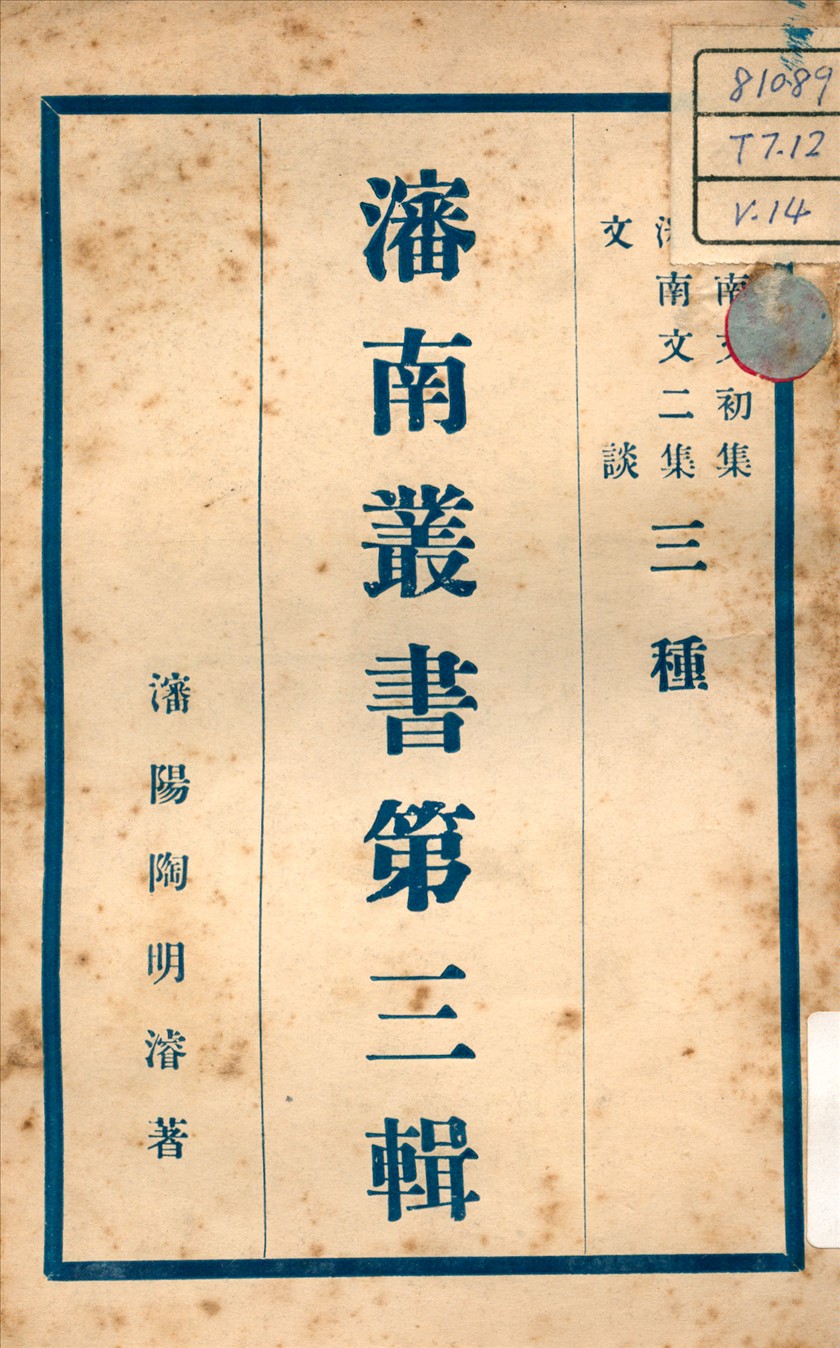 810.89
T7.12
V.14
南文初集
南文二集
文談
三種
瀋南叢書第三輯
瀋陽陶明濬著